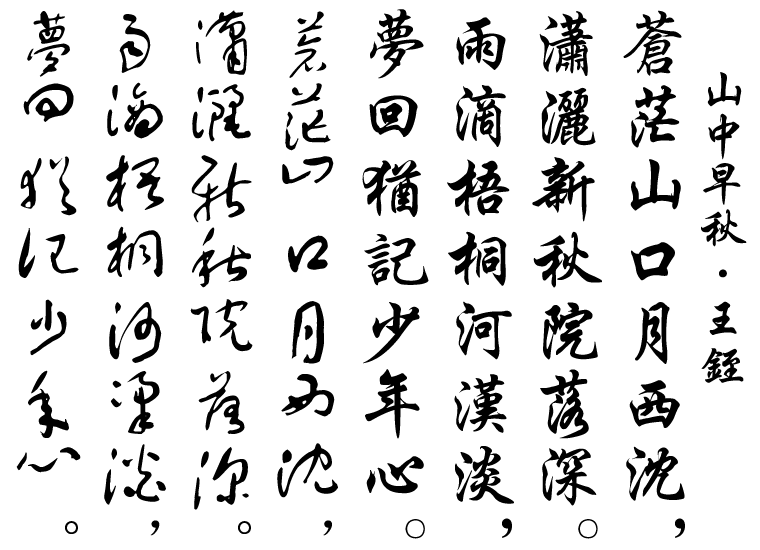 山中早秋・王銍
蒼茫山口月西沈，
瀟灑新秋院落深。
雨滴梧桐河漢淡，
夢回猶記少年心。
蒼茫山口月西沈，
瀟灑新秋院落深。
雨滴梧桐河漢淡，
夢回猶記少年心。